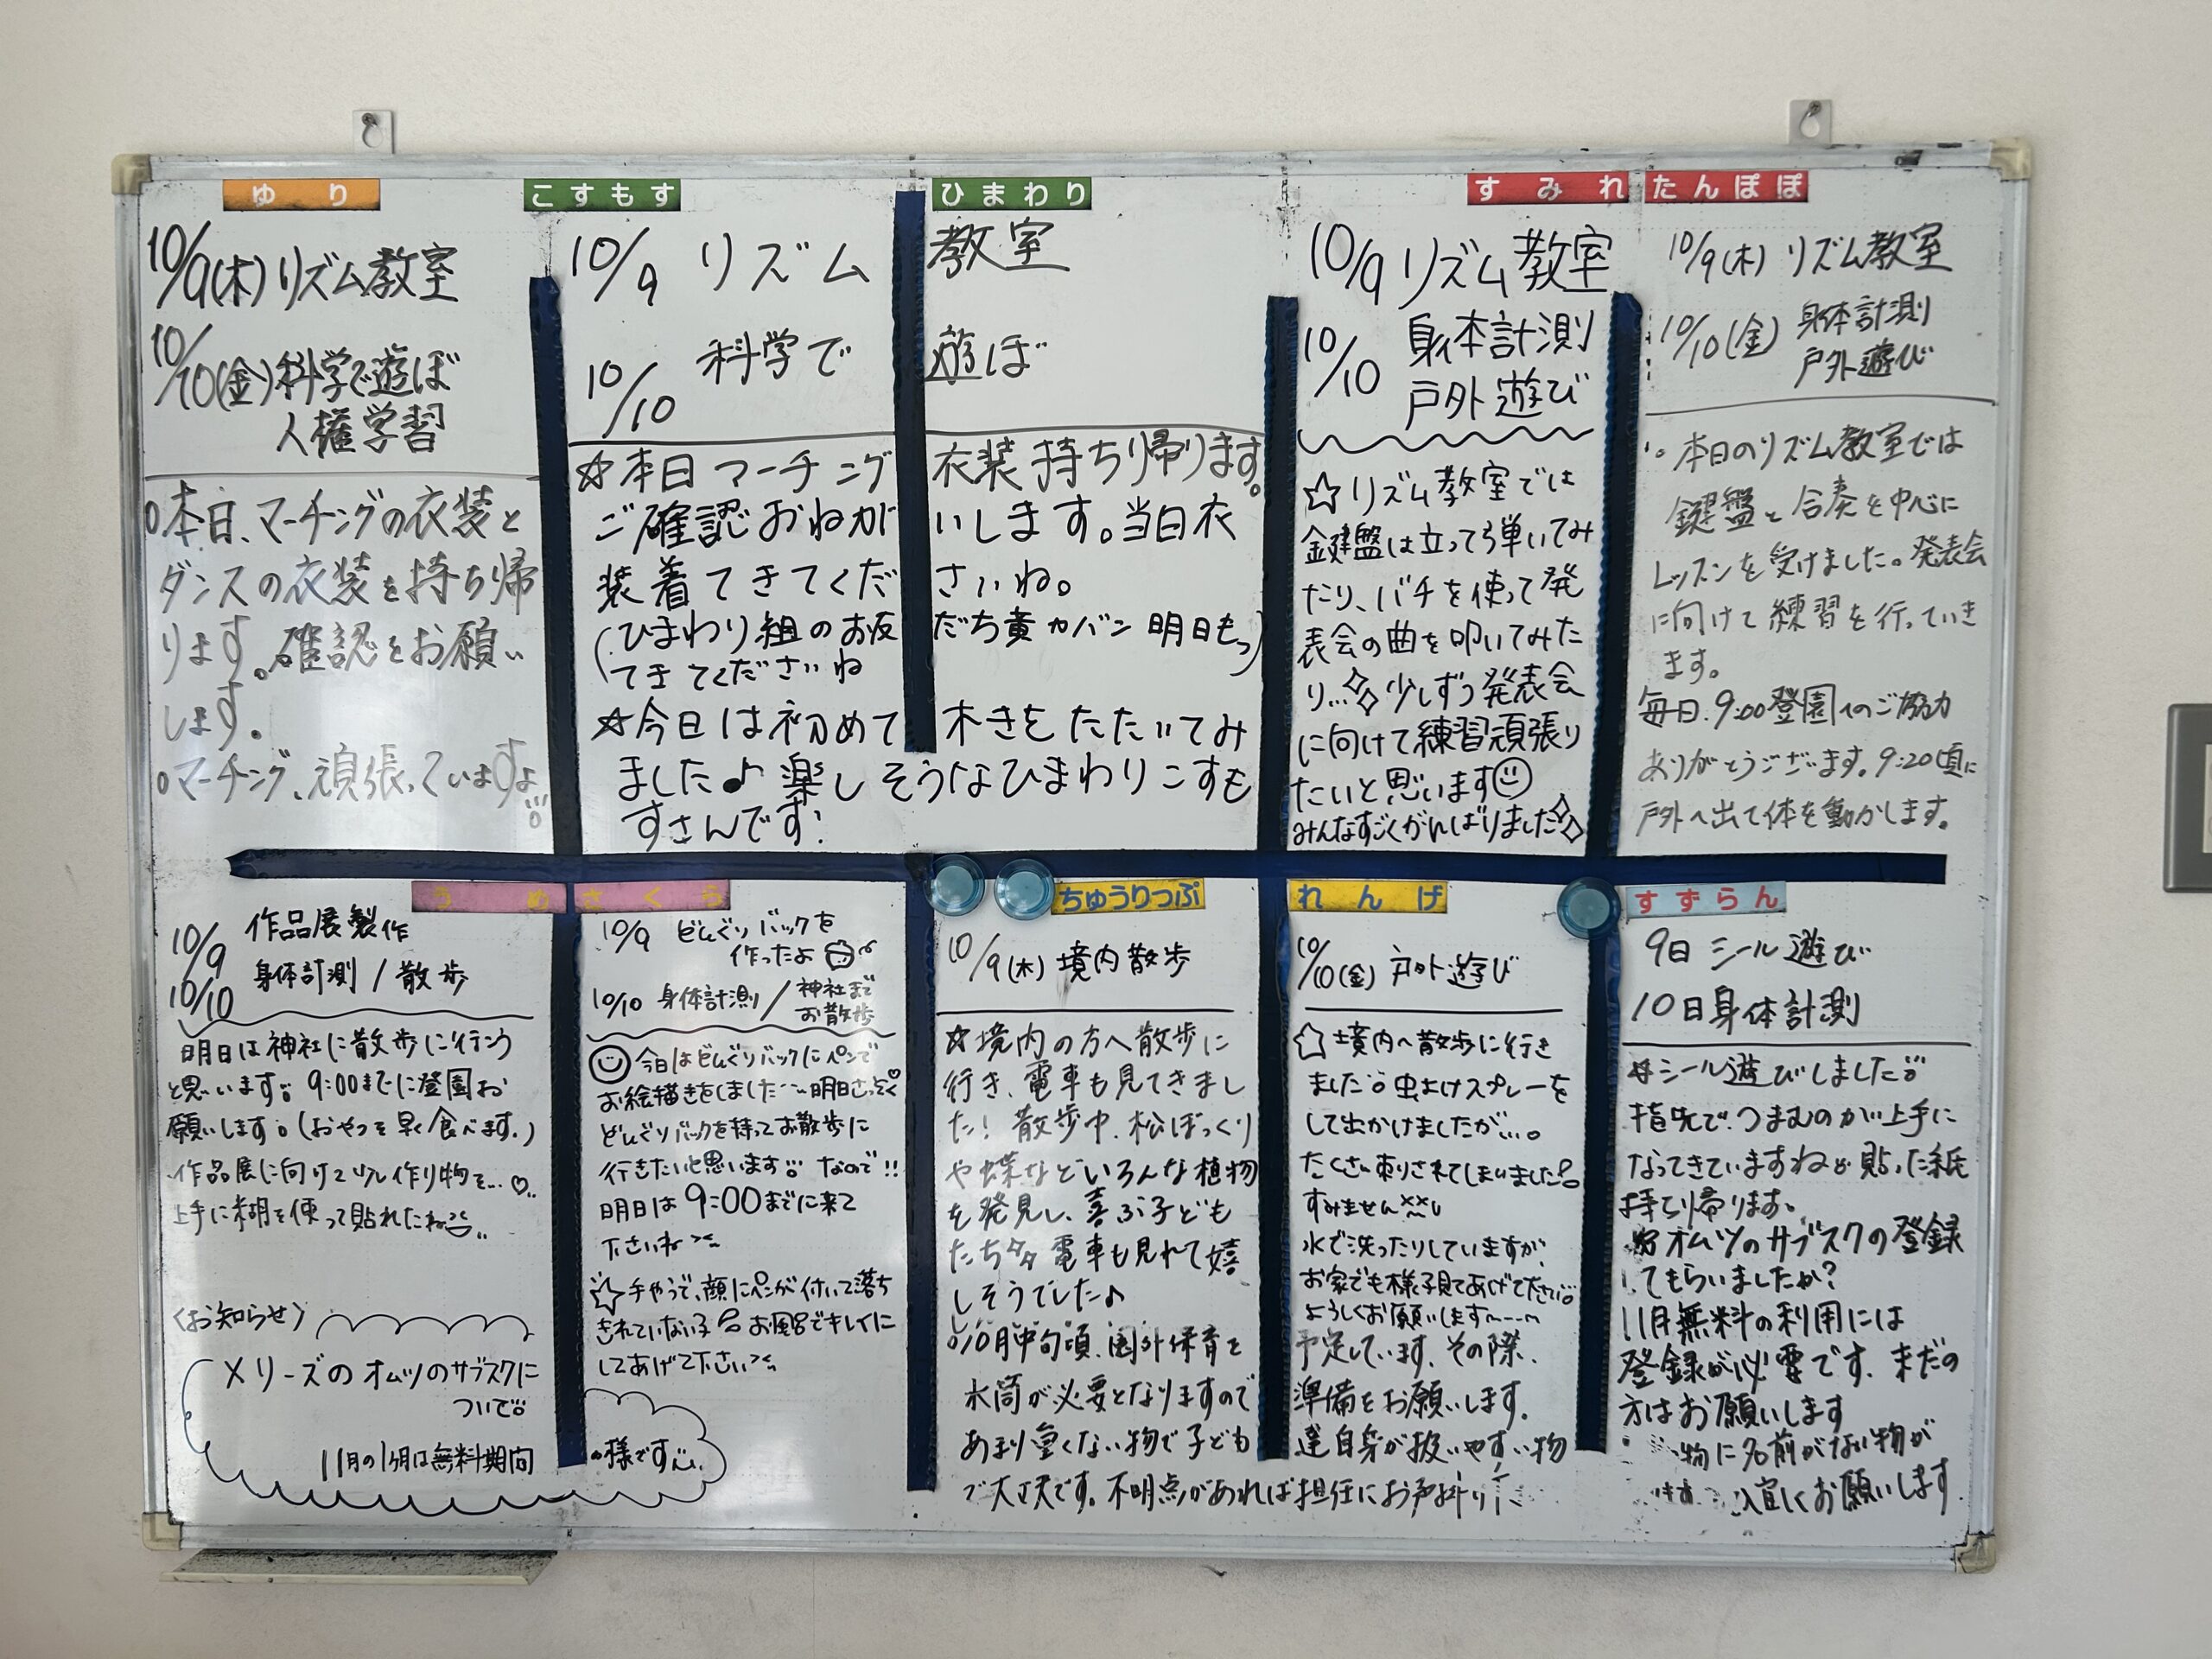 ゆり
10/9(木) リズム教室
10/10(金) 科学で遊ぼ
人権学習
○本日、マーチングの衣装と
ダンスの衣装を持ち帰
ります。確認をお願い
します。
○マーチング、頑張っていますよ!!!
こすもす ひまわり
10/9 リズム教室
10/10 科学で遊ぼ
☆本日マーチング衣装持ち帰ります。
ご確認おねがいします。当日衣
装着てきてくださいね。
(ひまわり組のお友だち黄カバン明日もっ
てきてくださいね)
☆今日は初めて木きをたたいてみ
ました♪楽しそうなひまわりこすも
すさんです!
すみれ
10/9 リズム教室
10/10 身体計測
戸外遊び
☆リズム教室では
鍵盤は立って弾いてみ
たり、バチを使って発
表会の曲を叩いてみた
り…少しずつ発表会
に向けて練習頑張り
たいと思います
みんなすごくがんばりました
たんぽぽ
10/9(木) リズム教室
10/10(金) 身体計測
戸外遊び
○本日のリズム教室では
鍵盤と合奏を中心に
レッスンを受けました。発表会
に向けて練習を行っていき
ます。
毎日、9:00登園へのご協力
ありがとうございます。9:20頃に
戸外へ出て体を動かします。
うめ
10/9 作品展製作
10/10 身体計測/散歩
明日は神社に散歩に行こう
と思います。9:00までに登園お
願いします。(おやつを早く食べます。)
作品展に向けて少し作り物を…♡
上手に糊を使って貼れたね
さくら
10/9 どんぐりバックを
作ったよ
10/10 身体計測/神社まで
お散歩
今日はどんぐりバックにペンで
お絵描きをしました…明日さっそく
どんぐりバックを持ってお散歩に
行きたいと思います。なので!!
明日は9:00までに来て
下さいね
☆手やうで、顔にペンが付いて落ち
きれていない子 お風呂でキレイに
してあげて下さい
〈お知らせ〉
メリーズのオムツのサブスクに
ついて
11月の1ヶ月は無料期間の様です
ちゅうりっぷ れんげ
10/9(木) 境内散歩
10/10(金) 戸外遊び
☆境内の方へ散歩に
行き、電車も見てきまし
た! 散歩中、松ぼっくり
や蝶などいろんな植物
を発見し、喜ぶ子ども
たち 電車も見れて嬉
しそうでした♪
☆境内へ散歩に行き
ました。虫よけスプレーを
して出かけましたが…。
たくさん刺されてしまいました
すみません
水で洗ったりしていますが、
お家でも様子見てあげてください。
よろしくお願いします
○10月中旬頃、園外保育を予定しています。その際、
水筒が必要となりますので準備をお願いします。
あまり重くない物で子ども達自身が扱いやすい物
で大丈夫です。不明点があれば担任にお声掛け
すずらん
9日 シール遊び
10日 身体計測
シール遊びしました
指先で、つまむのが上手に
なってきていますね 貼った紙
持ち帰ります。
オムツのサブスクの登録
してもらいましたか?
11月無料の利用には
登録が必要です。まだの
方はお願いします
物に名前がない物が
宜しくお願いします